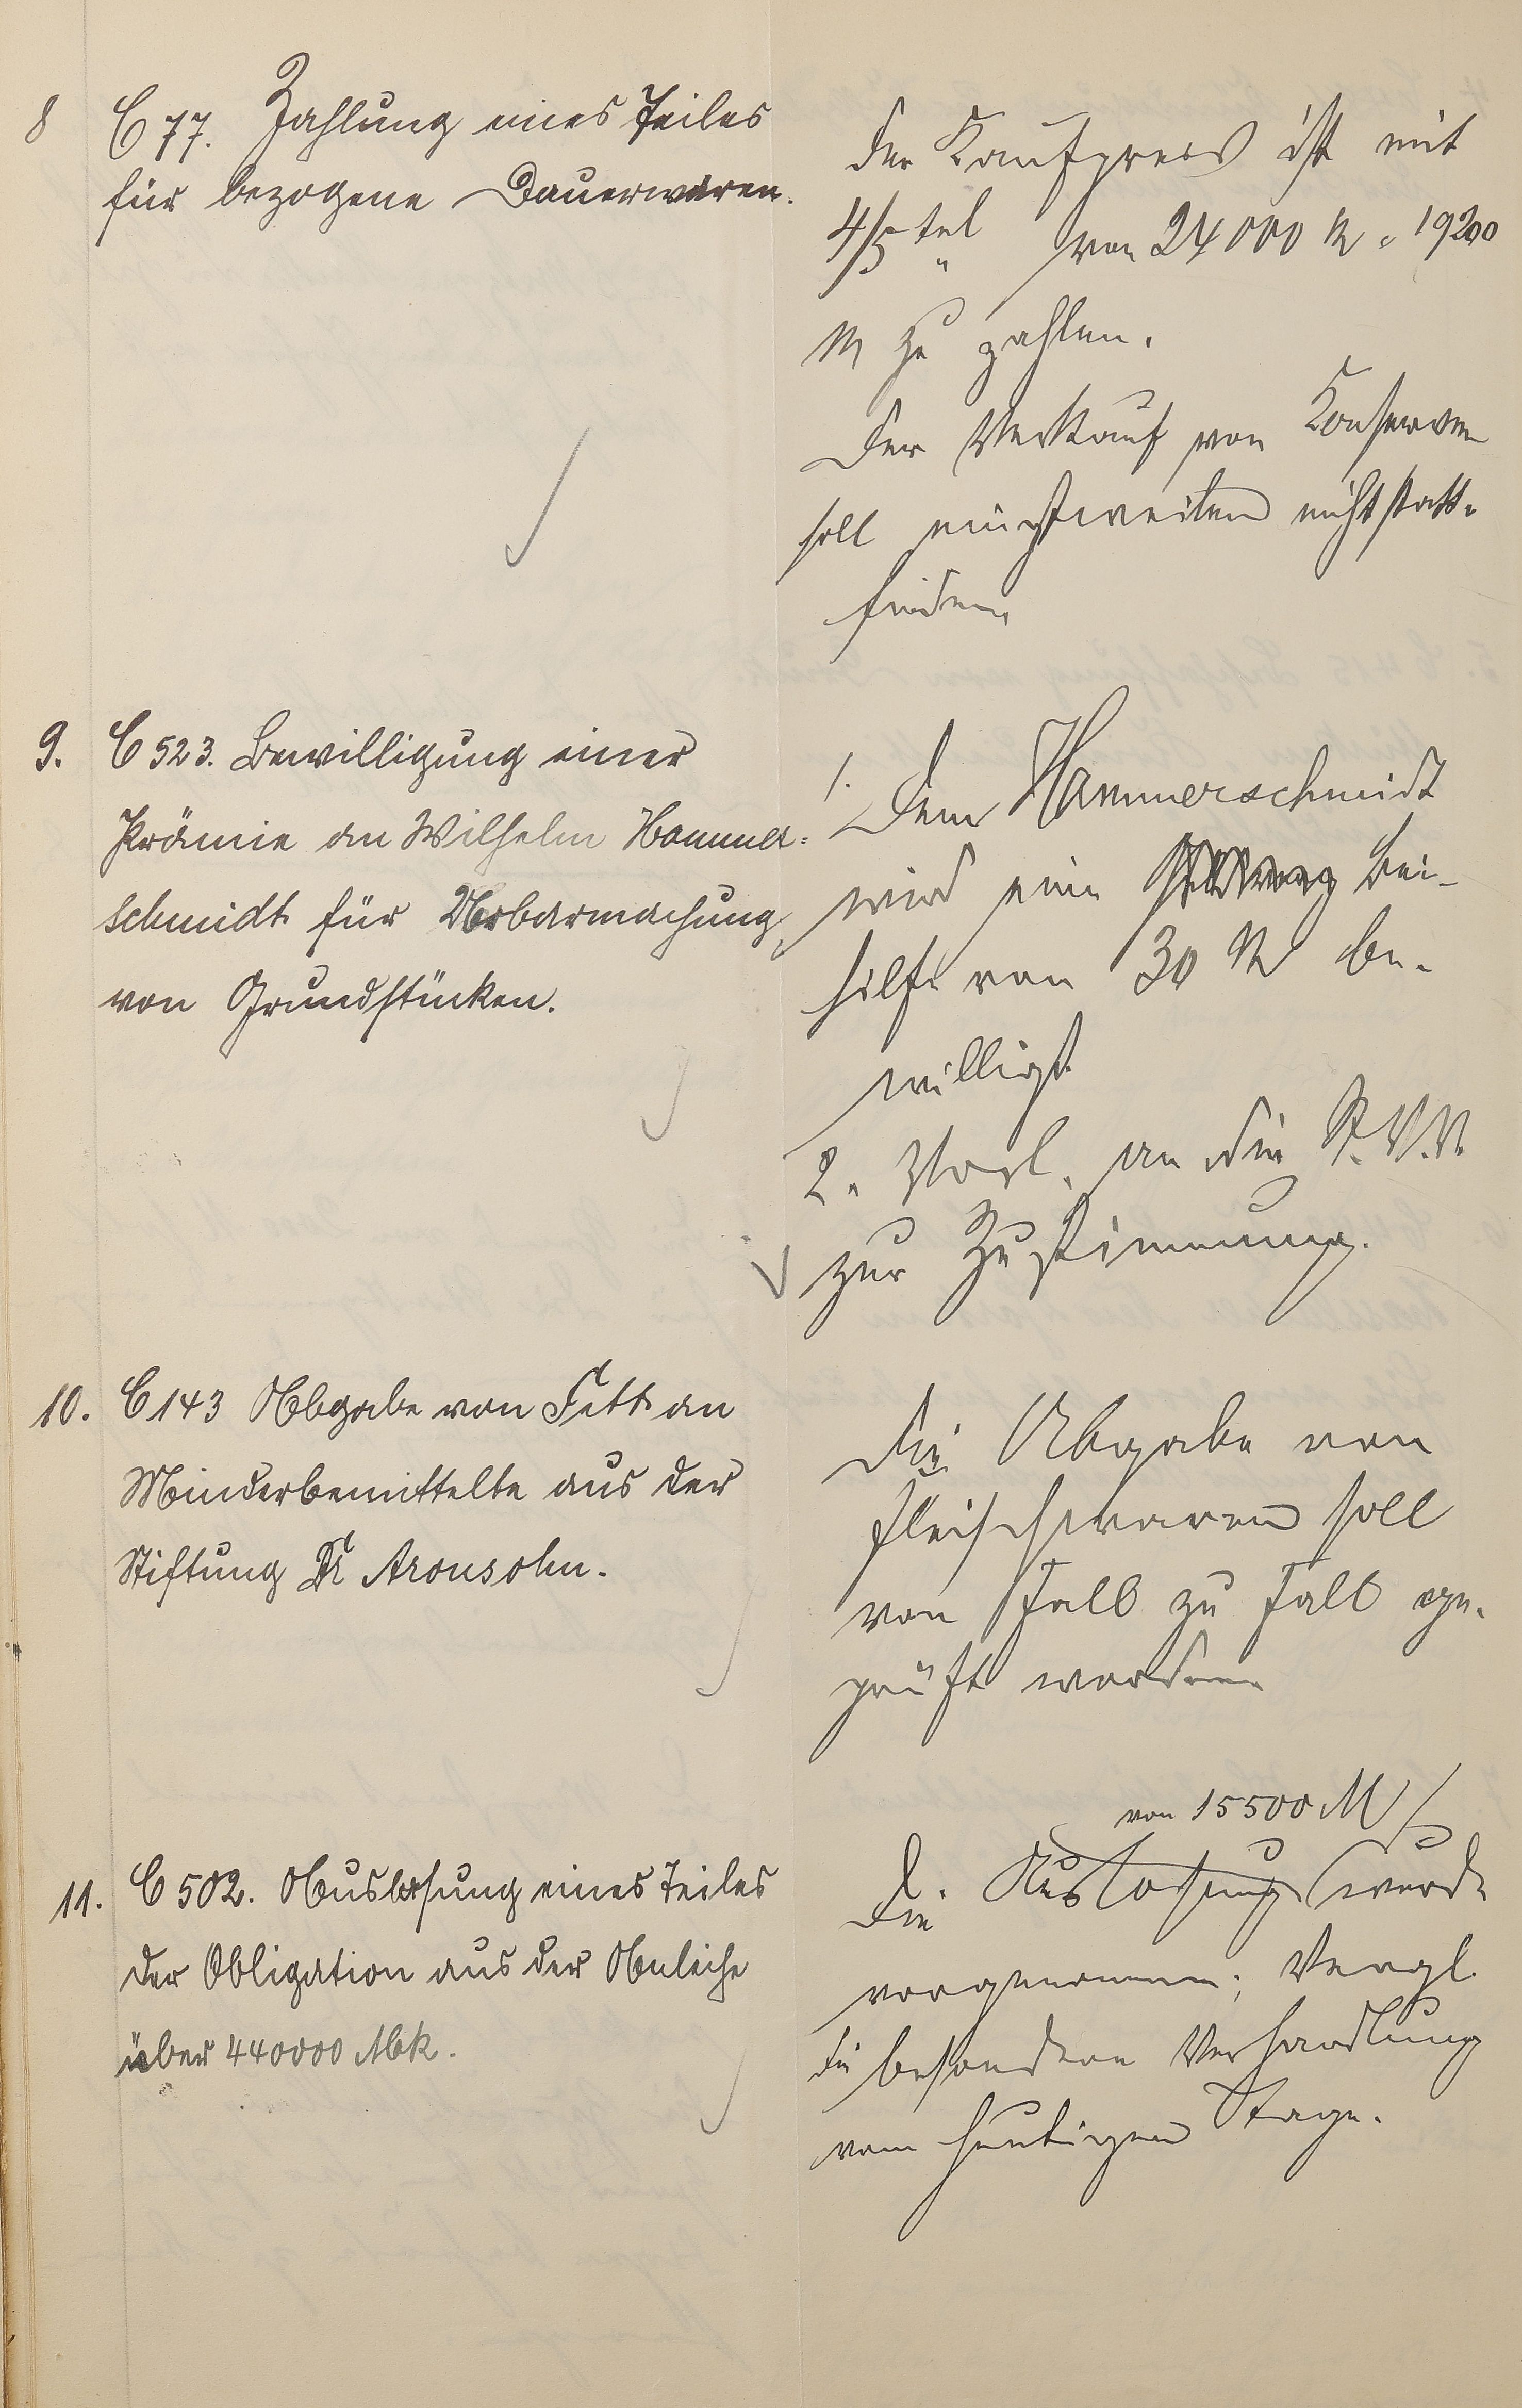 8 C 77. Zahlung eines Teiles
für bezogene Dauerwaren.
Der Kaufpreis ist mit
4/5 tel von 24000 M = 19200
M zu zahlen.
Der Verkauf von Konserven
soll einstweilen nicht statt-
finden.
9. C 523. Bewilligung einer
Prämie an Wilhelm Hammer-
schmidt für Urbarmachung
von Grundstücken.
1. Dem Hammerschmidt
wird eine Bei-
hilfe von 30 M be-
willigt
2. Vorl. an die St.V.V.
zur Zustimmung.
10. C 143 Abgabe von Fett an
Minderbemittelte aus der
Stiftung Dr Aronsohn.
Die Abgabe von
Fleischwaren soll
von Fall zu Fall ge-
prüft werden.
11. C 502. Auslosung eines Teiles
der Obligation aus der Anleihe
über 440000 Mk.
von 15500 M
Die Auslosung wurde
vorgenommen; Vergl.
die besondere Verhandlung
vom heutigen Tage.